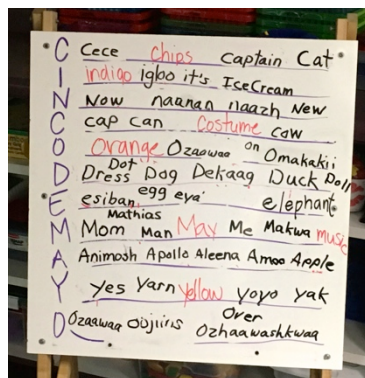 C Cece chips captain Cat
I Indigo igloo it's IceCream
N Now naanan naazh New
C cap can costume cow
O orange Ozaawaa on Omakakii
D Dress Dot Dog Dekaag Duck Doll
E esiban egg eya' elephant
M Mom Mathias Man May Me Makwa music
A Animosh Apollo Aleena Amoo Apple
Y yes yarn yellow yoyo yak
O Ozaawaa odjiins over ozhaawashkwaa